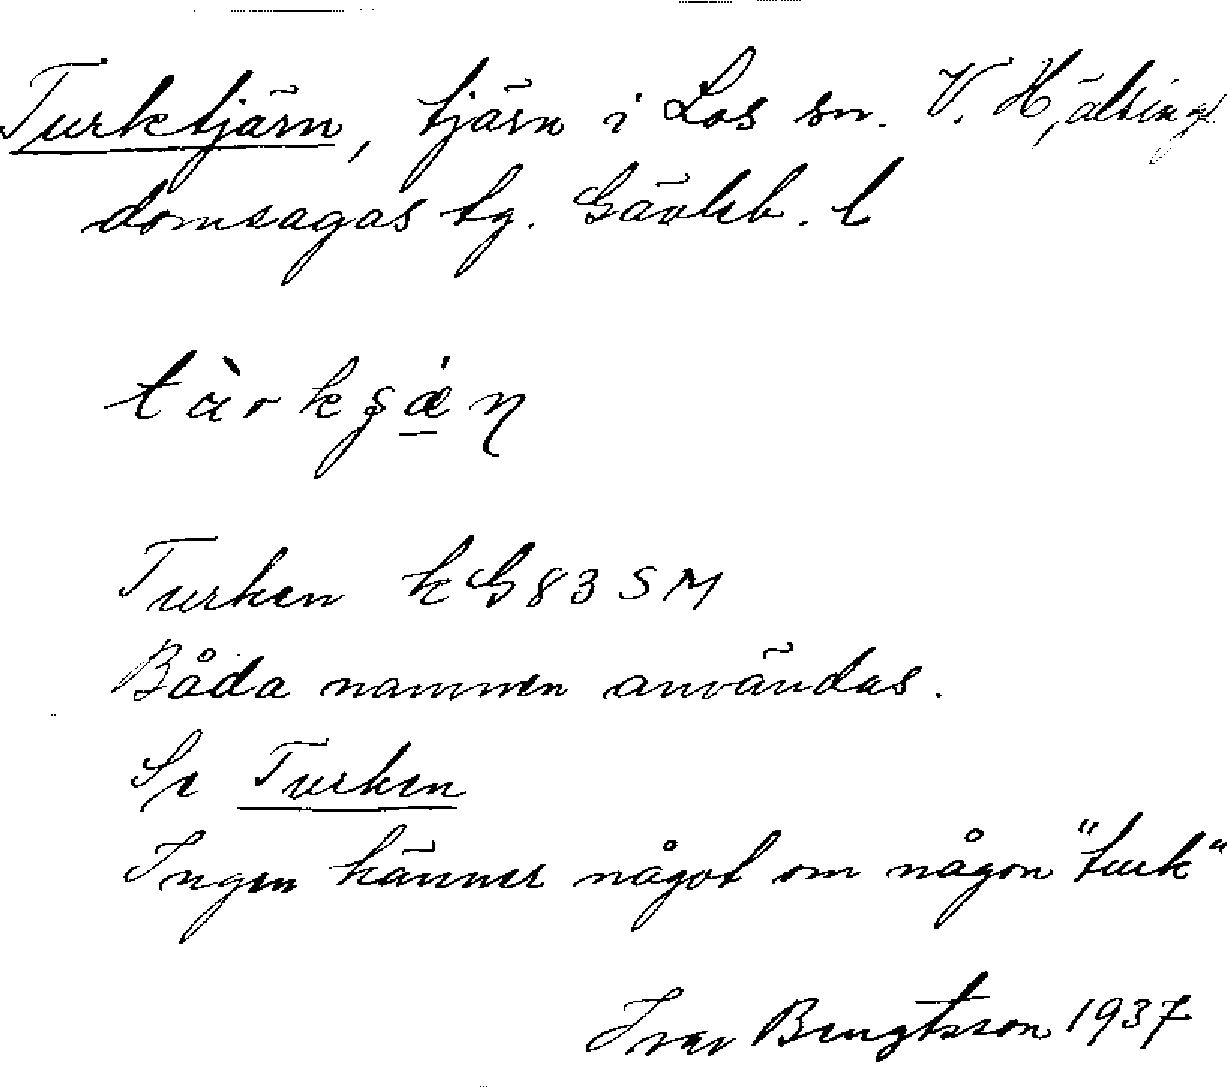 Turktjärn, tjärn i Los sn. V. Hälsingl.
domsagas tg. Gävleb. l
Turken kG83SM
Båda namnen användas.
Se Turken
Ingen känner något om någon "turk"
Ivar Bengtsson 1937